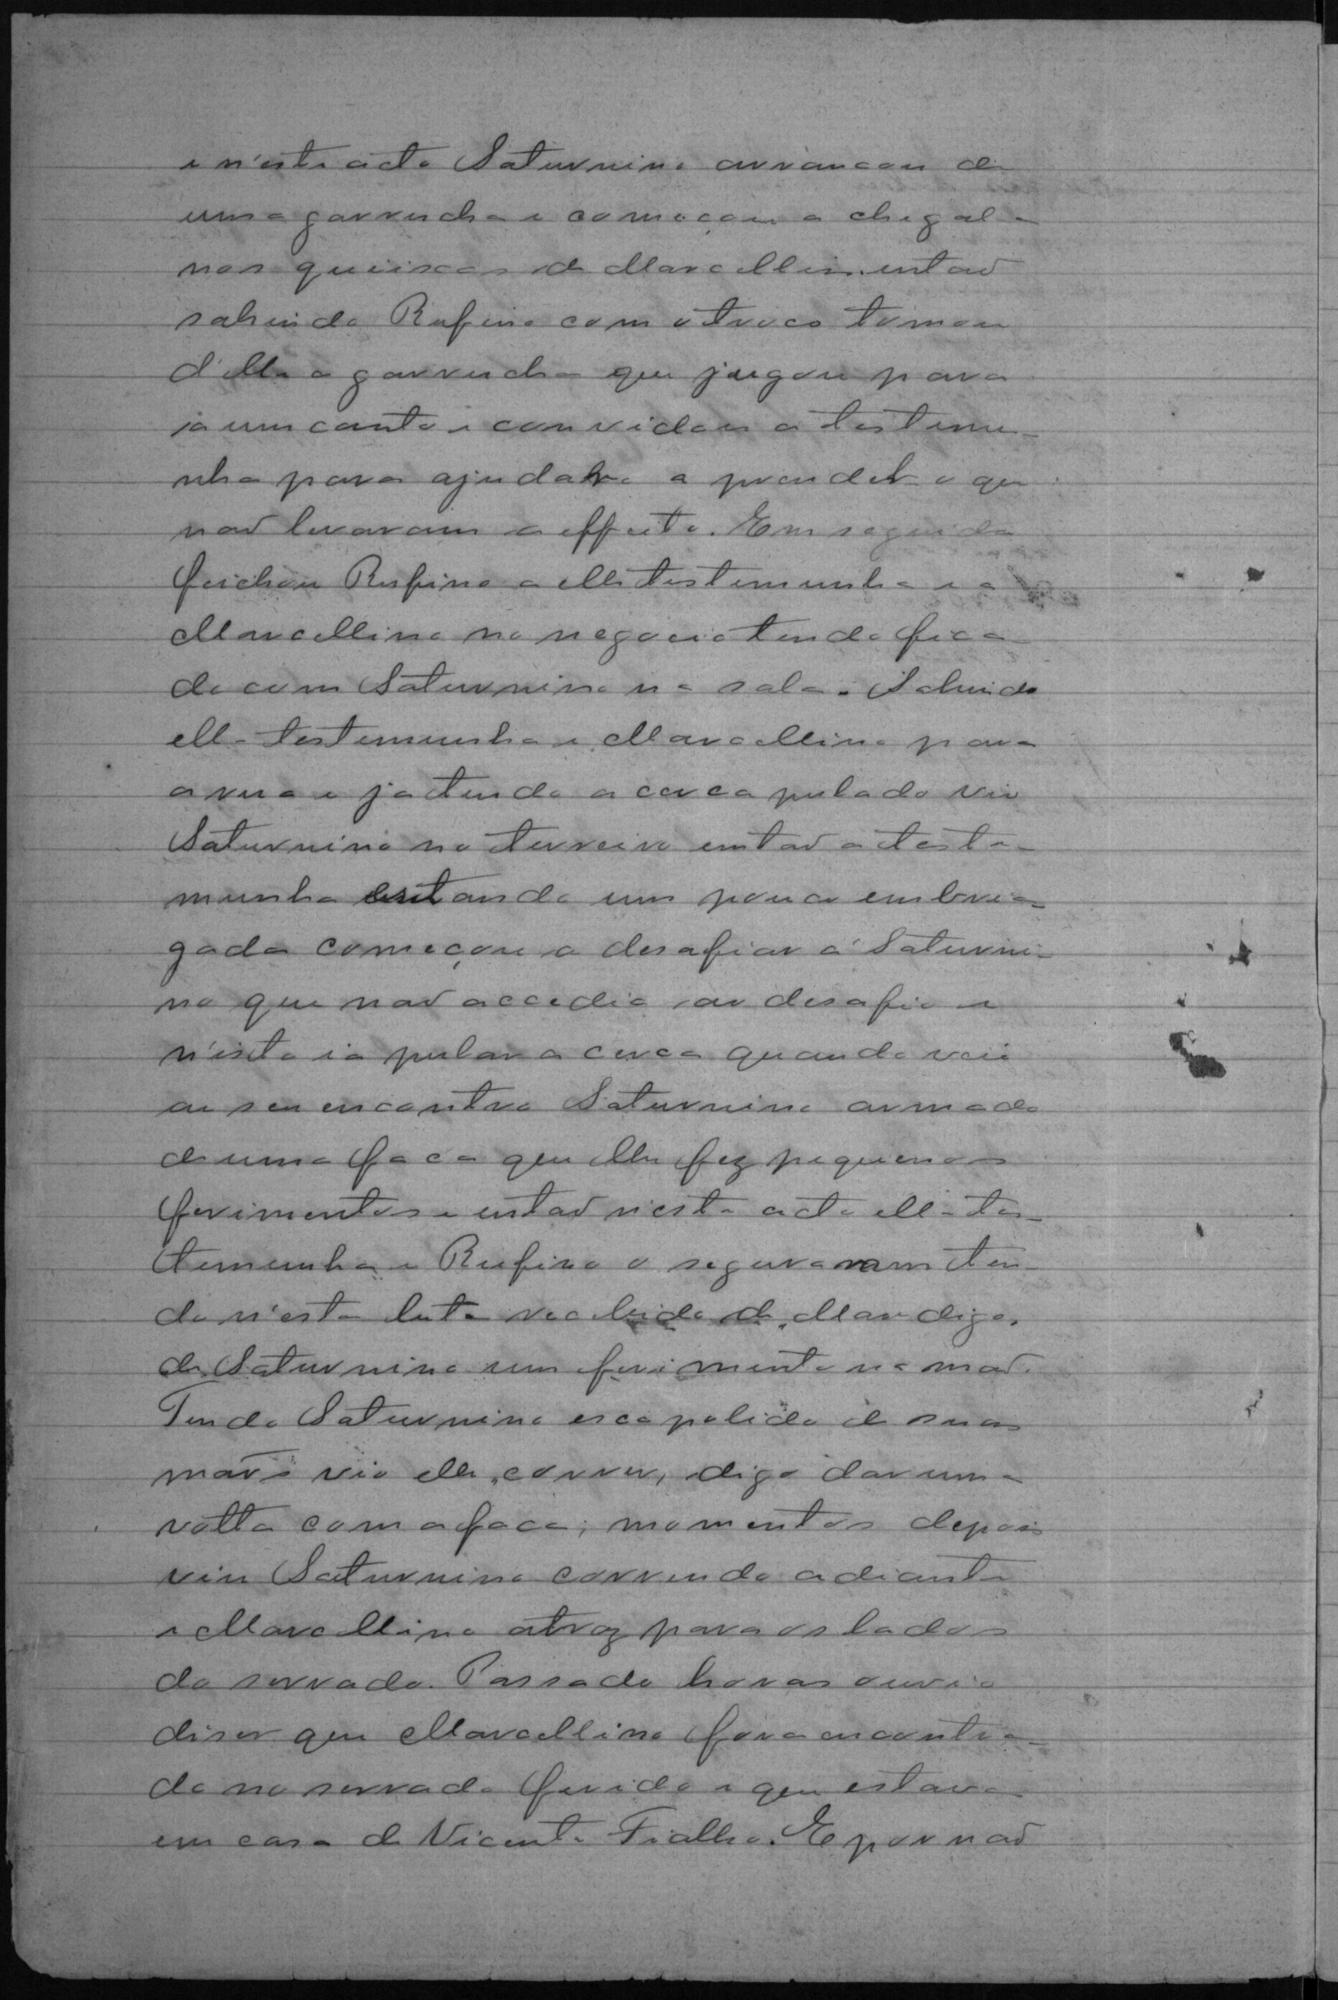 e n'este acto Saturnino arrancou de
uma garrucha e começou a chegal-a
nos queixos de Marcellino, então
sahindo Rufino com o troco tomou
d'elle a garrucha que jugou para
a um canto e convidou a testemu-
nha para ajudal-o a prendel-o que
não levaram a effeito. Em seguida
feichou Rufino a elle testemunha e a
Marcellino no negocio tendo fica-
do com Saturnino na sala. Sahindo
elle testemunha e Marcellino para
a rua e ja tendo a cerca pulado vio
Saturnino no terreiro então a teste-
munha estando um pouco embria-
gada começou a desafiar á Saturni-
no que não accedia ao desafio e
n'isto ia pular a cerca quando veio
ao seu encontro Saturnino armado
de uma faca que lhe fez pequenos
ferimentos e então n'este acto elle tes-
temunha e Rufino o seguraram ten-
do n'esta luta recebido de Mar digo,
de Saturnino um ferimento na mão.
Tendo Saturnino escapolido de suas
mãos vio elle correr, digo dar uma
volta com a faca; momentos depois
viu Saturnino correndo adiante
e Marcellino atraz para os lados
do serrado. Passado horas ouvio
diser que Marcellino fora encontra-
do no serrado ferido e que estava
em casa de Vicente Fialho. E por não